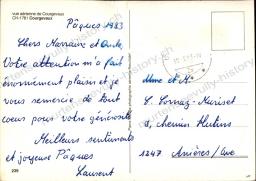 vue aérienne de Courgevaux
CH-1781 Courgevaux
Pâques 1983
Chers Marraine et Oncle,
Votre attention m'a fait
énormément plaisir et je
vous remercie de tout
coeur pour votre générosité.
Meilleurs sentiments
et joyeuse Pâques
Laurent
239
Mme et Mr
S. Cornaz-Muriset
8, chemin
1247 Anières/Gve